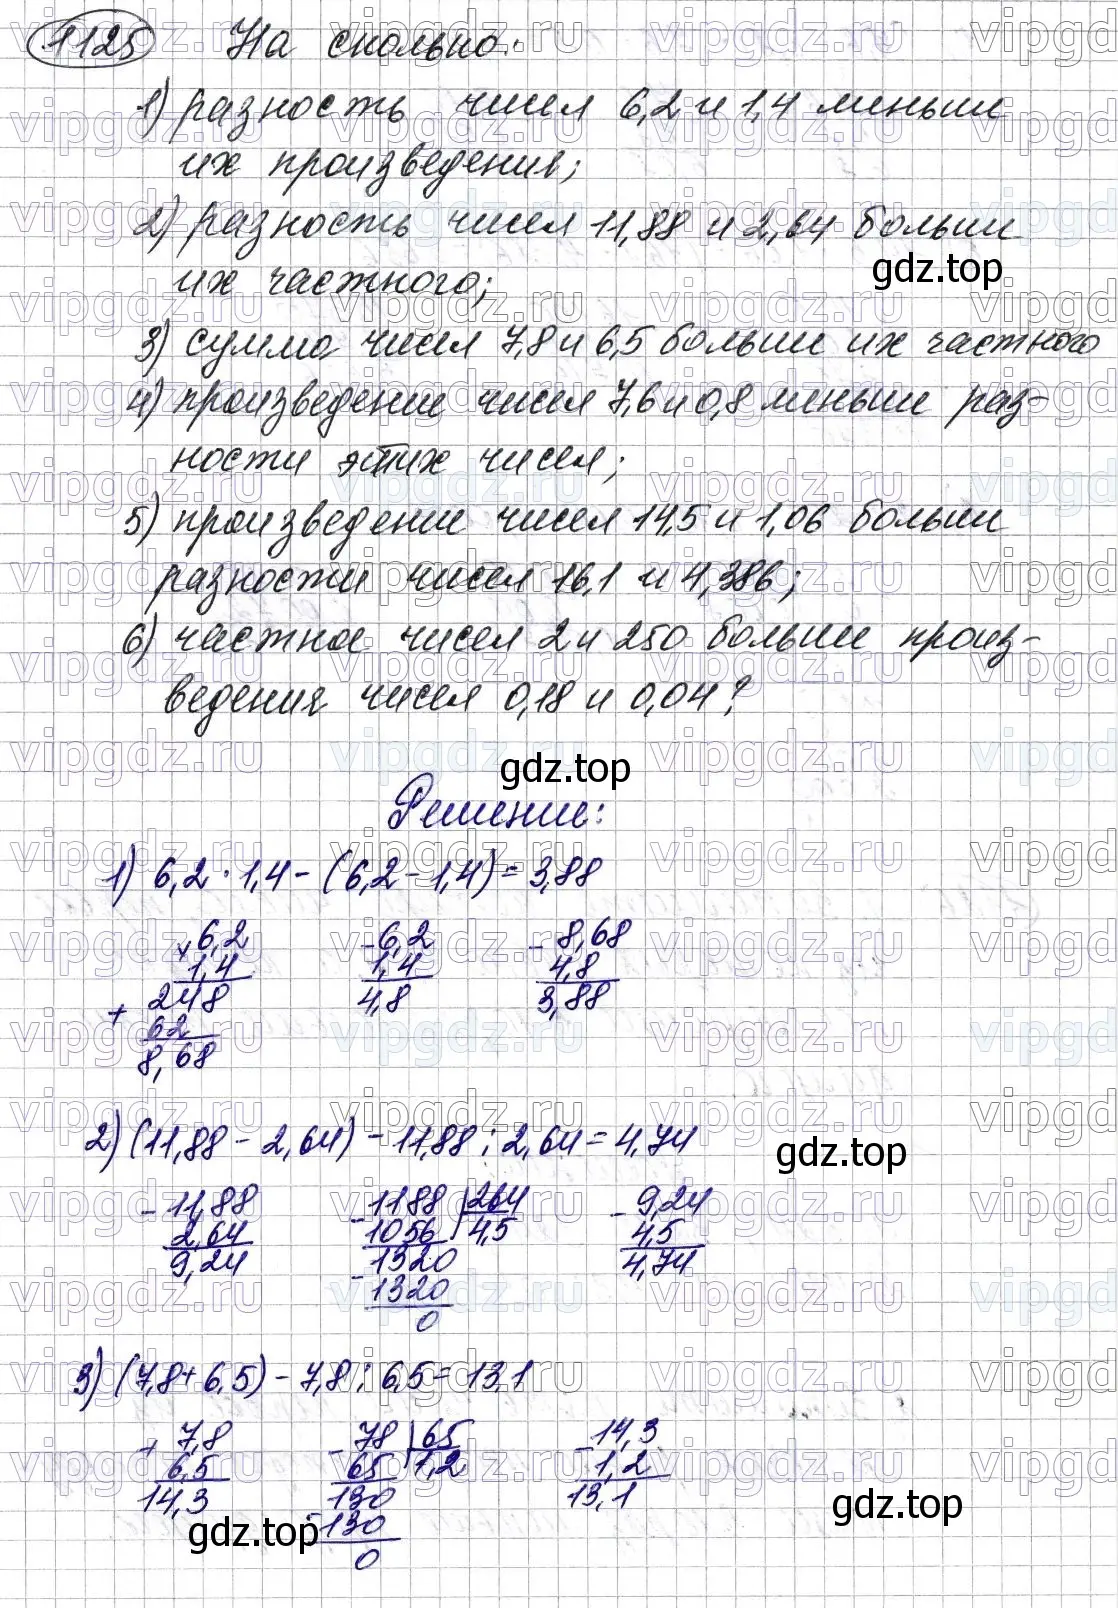 1125 На сколько:
1) разность чисел 6,2 и 1,4 меньше
их произведения;
2) разность чисел 11,88 и 2,64 больше
их частного;
gdz.top
3) сумма чисел 7,8 и 6,5 больше их частного
4) произведение чисел 7,6 и 0,8 меньше раз-
ности этих чисел;
5) произведение чисел 14,5 и 1,06 больше
разности чисел 16,1 и 4,386;
6) частное чисел 2 и 250 больше произ-
ведения чисел 0,18 и 0,04?
gdz.top
Решение:
1) 6,2 · 1,4 - (6,2 - 1,4) = 3,88
× 6,2 - 6,2 - 8,68
1,4 1,4 4,8
+ 248 4,8 3,88
62
8,68
2) (11,88 - 2,64) - 11,88 : 2,64 = 4,74
gdz.top
- 11,88 - 1188 264 - 9,24
2,64 1056 4,5 4,5
9,24 - 1320 4,74
1320
0
3) (7,8 + 6,5) - 7,8 : 6,5 = 13,1
+ 7,8 - 78 65 - 14,3
6,5 65 1,2 1,2
14,3 - 130 13,1
130
0
gdz.top gdz.top